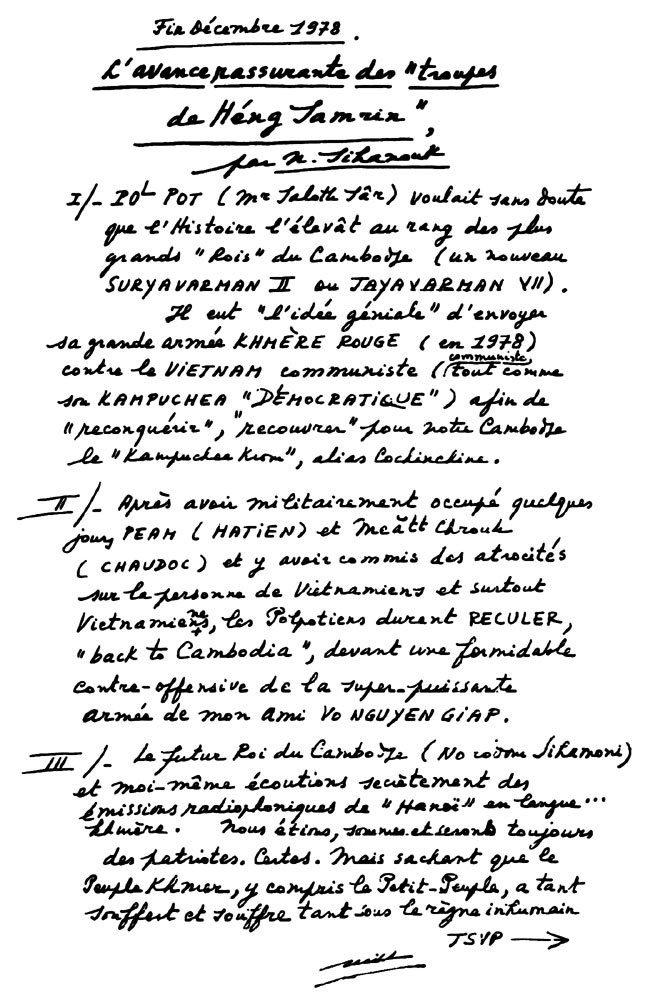 Fin Décembre 1978.
L'avance rassurante des "troupes
de Héng Samrin",
par N. Sihanouk
I/- POL POT (Mr Saloth Sâr) voulait sans doute
que l'Histoire l'élevât au rang des plus
grands "Rois" du Cambodge (un nouveau
SURYAVARMAN II ou JAYAVARMAN VII).
Il eut "l'idée géniale" d'envoyer
sa grande armée KHMÈRE ROUGE (en 1978)
contre le VIETNAM communiste (communiste, tout comme
son KAMPUCHEA "DÉMOCRATIQUE") afin de
"reconquérir", "recouvrer" pour notre Cambodge
le "Kampuchea Krom", alias Cochinchine.
II/- Après avoir militairement occupé quelques
jours PEAM (HATIEN) et Meătt Chrouk
(CHAUDOC) et y avoir commis des atrocités
sur la personne de Vietnamiens et surtout
Vietnamiennes, les Polpotiens durent RECULER,
"back to Cambodia", devant une formidable
contre-offensive de la super-puissante
armée de mon ami VO NGUYEN GIAP.
III/- Le futur Roi du Cambodge (Norodom Sihamoni)
et moi-même écoutions secrètement des
émissions radiophoniques de "Hanoï" en langue...
khmère. Nous étions, sommes et serons toujours
des patriotes. Certes. Mais sachant que le
Peuple Khmer, y compris le Petit-Peuple, a tant
souffert et souffre tant sous le règne inhumain
TSVP →